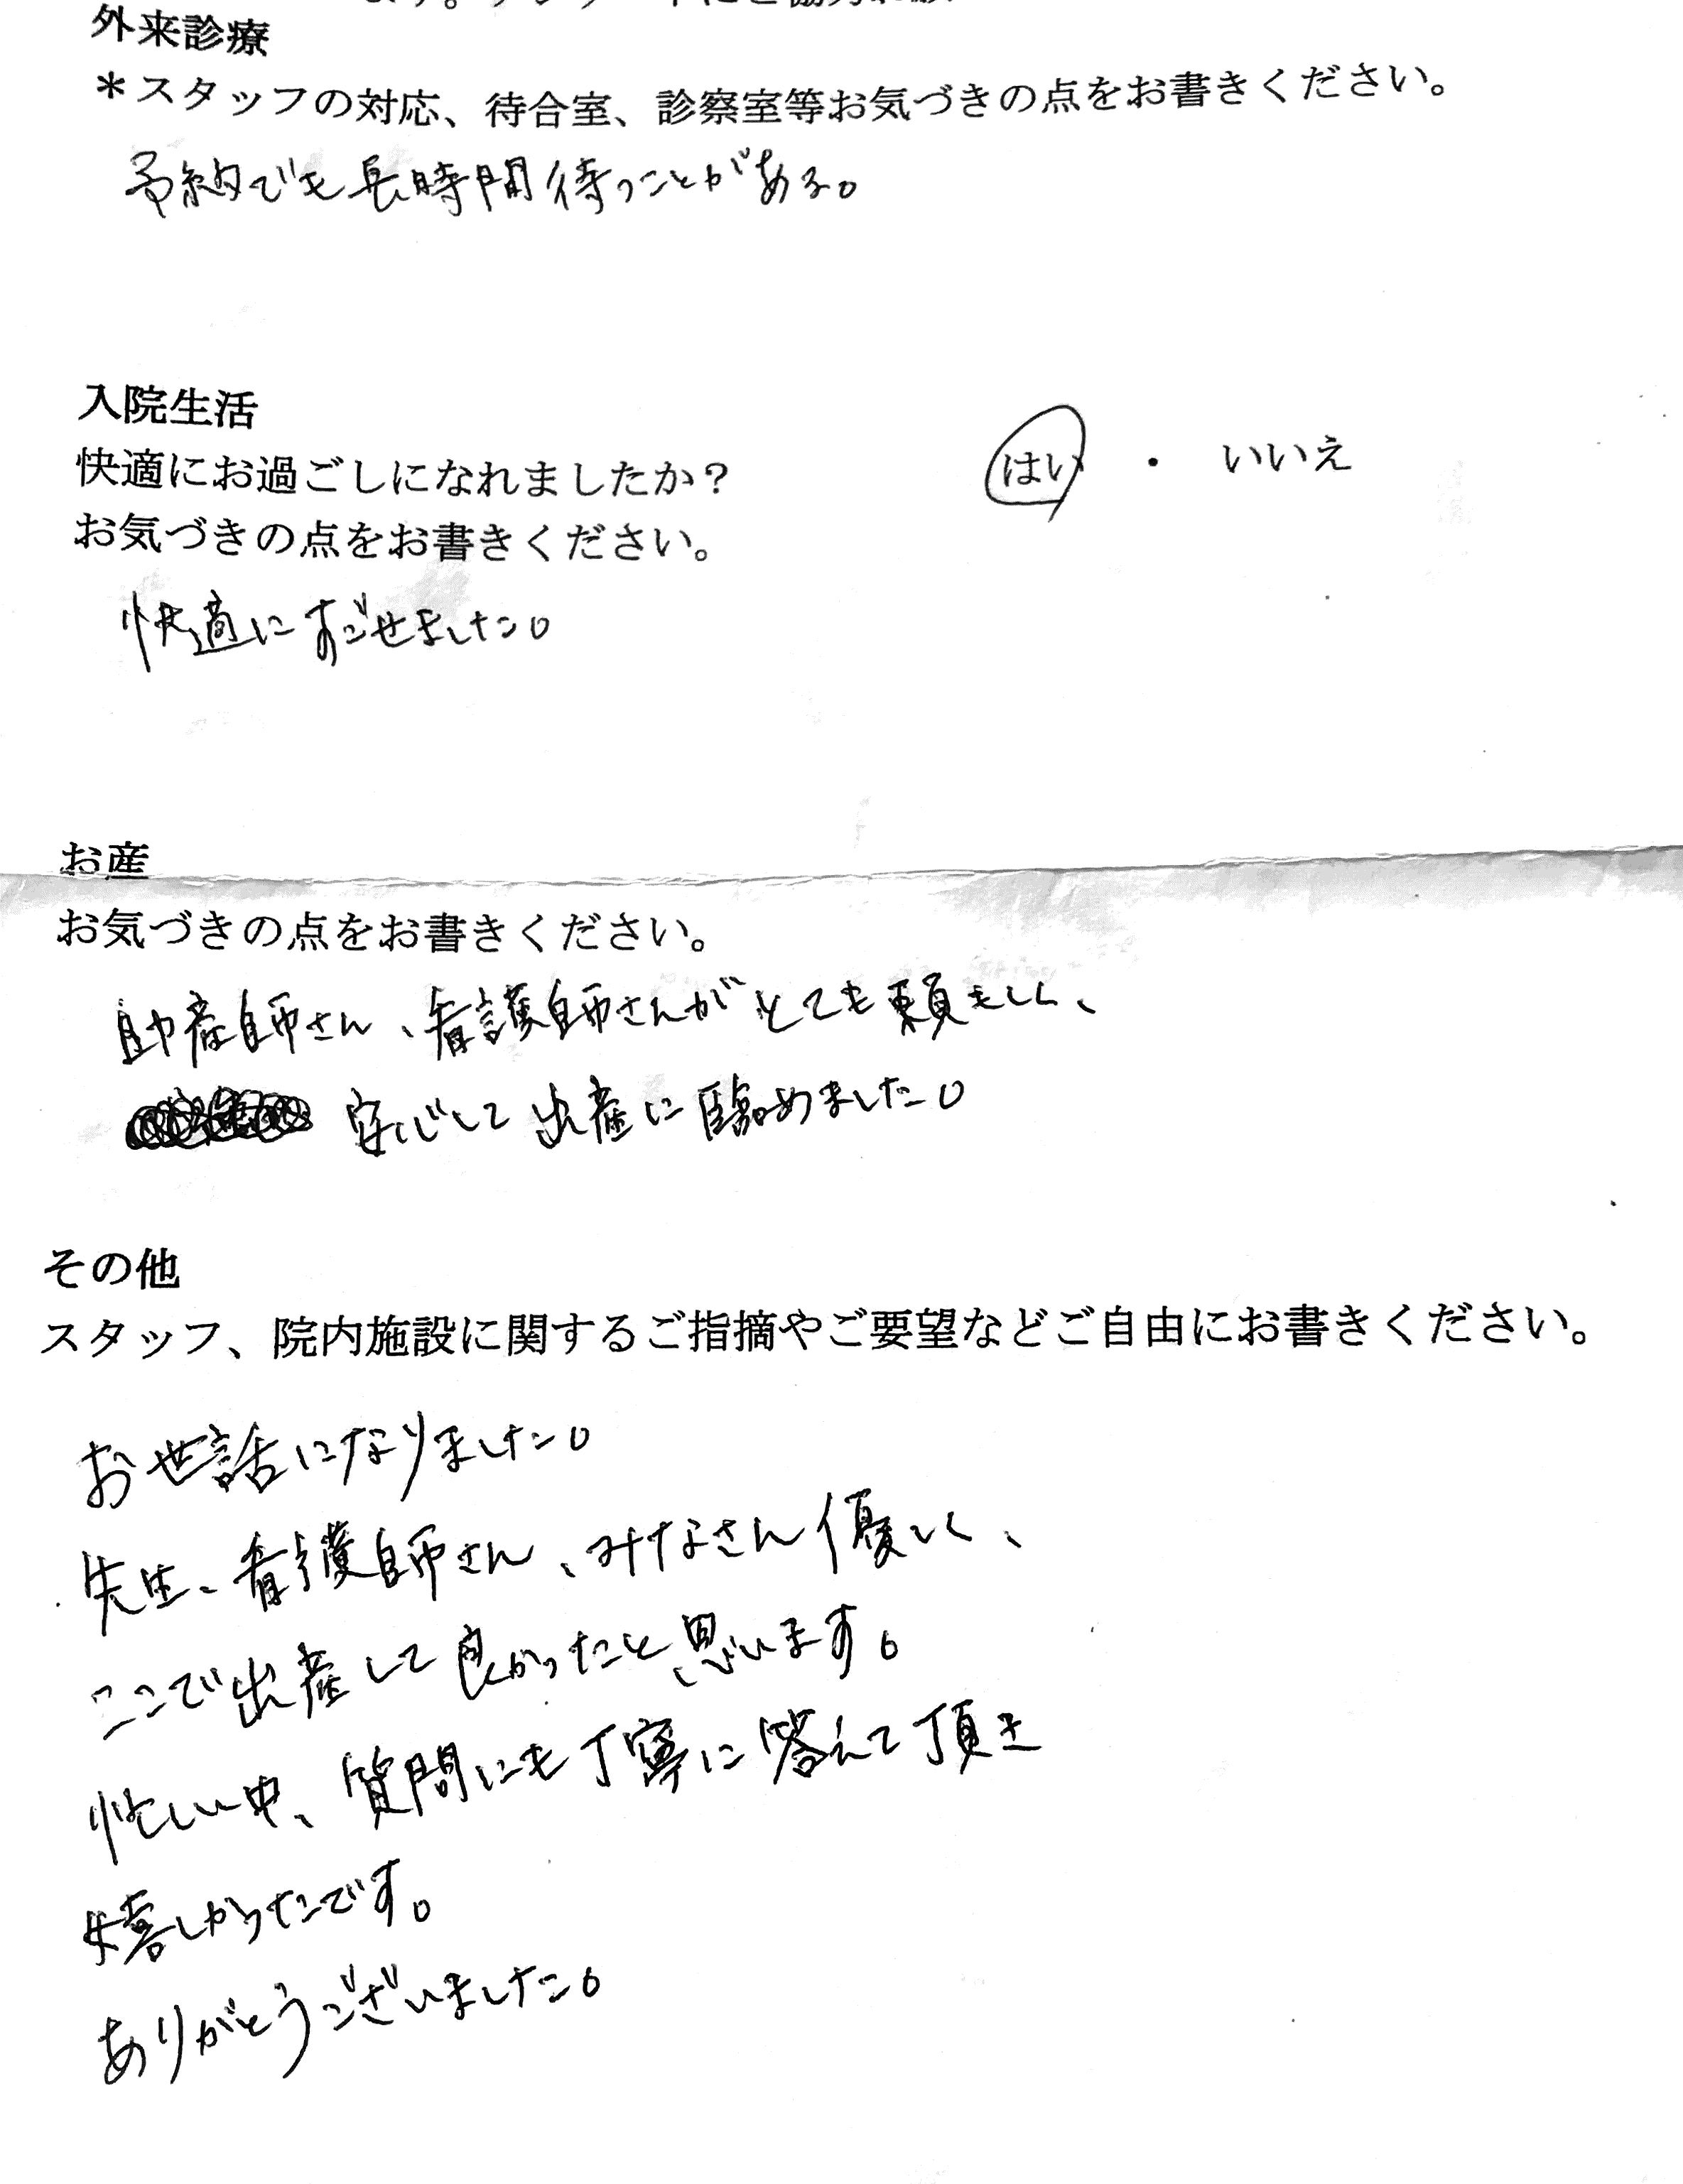 外来診療
＊スタッフの対応、待合室、診察室等お気づきの点をお書きください。
予約でも長時間待つことがある。
入院生活
快適にお過ごしになれましたか？ はい ・ いいえ
お気づきの点をお書きください。
快適にすごせました。
お産
お気づきの点をお書きください。
助産師さん、看護師さんがとても頼もしく、
安心して出産に臨めました。
その他
スタッフ、院内施設に関するご指摘やご要望などご自由にお書きください。
お世話になりました。
先生、看護師さん、みなさん優しく、
ここで出産して良かったと思います。
忙しい中、質問にも丁寧に答えて頂き
嬉しかったです。
ありがとうございました。